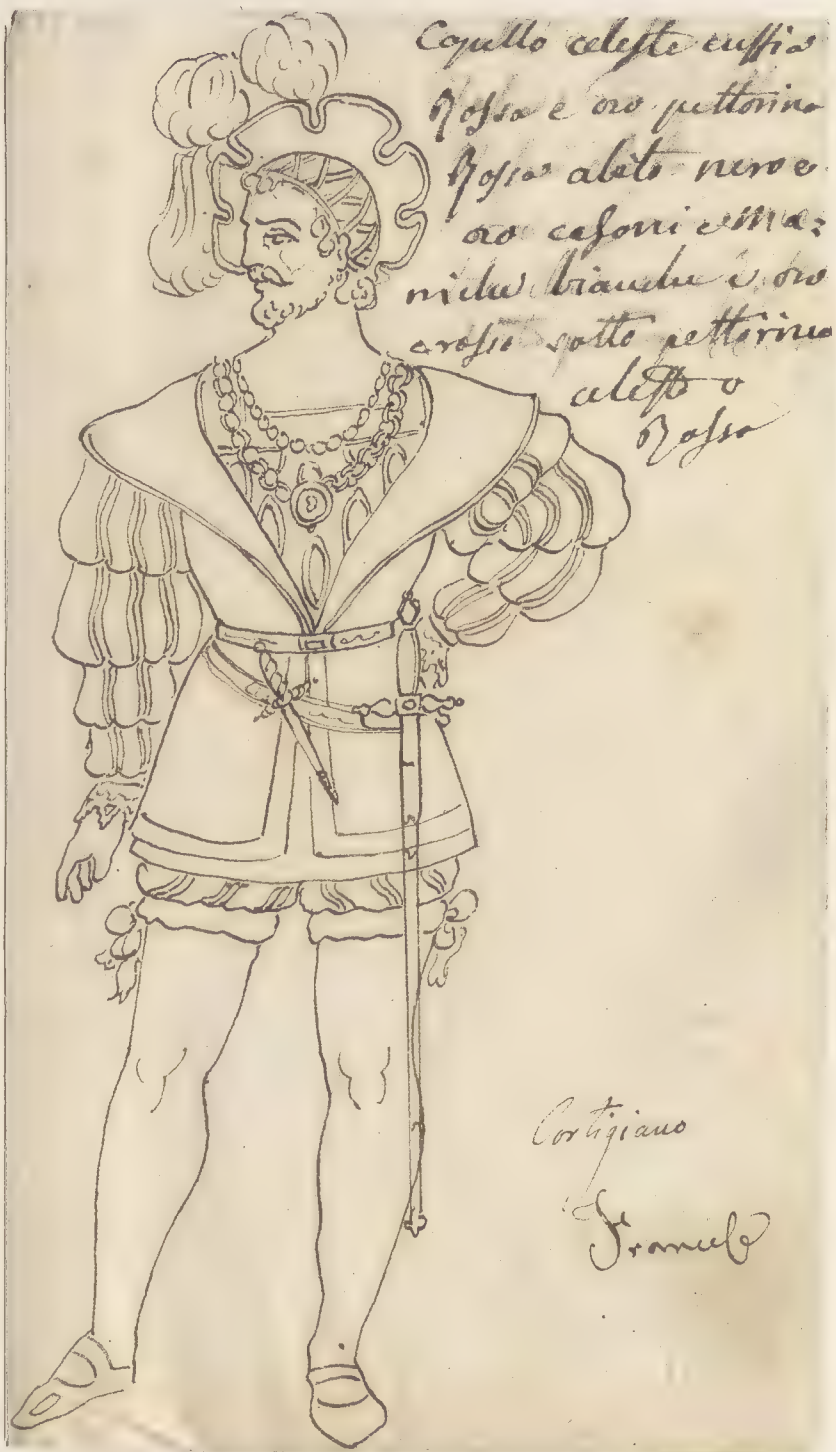 Capello celeste cuffia
Rossa e oro pettorina
Rossa abito nero e
oro calzoni e Ma=
niche bianche e oro
e rosso sotto pettorina
celeste o
Rossa
Cortigiano
Francese